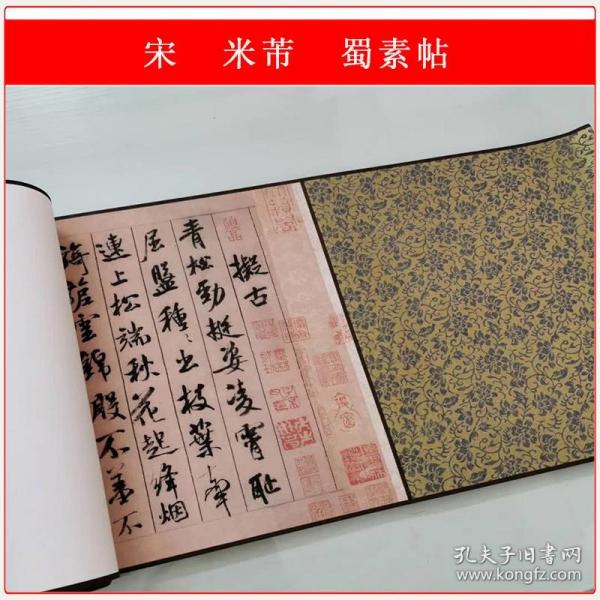 宋 米芾 蜀素帖
擬古
青松勁挺姿凌霄耻
屈盤種々出枝葉牽
連上松端秋花起絳烟
旖旎雲錦殷不羞不
孔夫子旧书网
www.kongfz.com